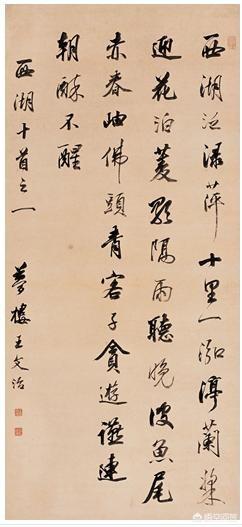 西湖泛渌萍十里一泓渟蘭槳
迎花泊菱歌隔雨聽晚波魚尾
赤春岫佛頭青客子貪遊讌連
朝醉不醒
西湖十首之一
夢樓王文治
悟空问答